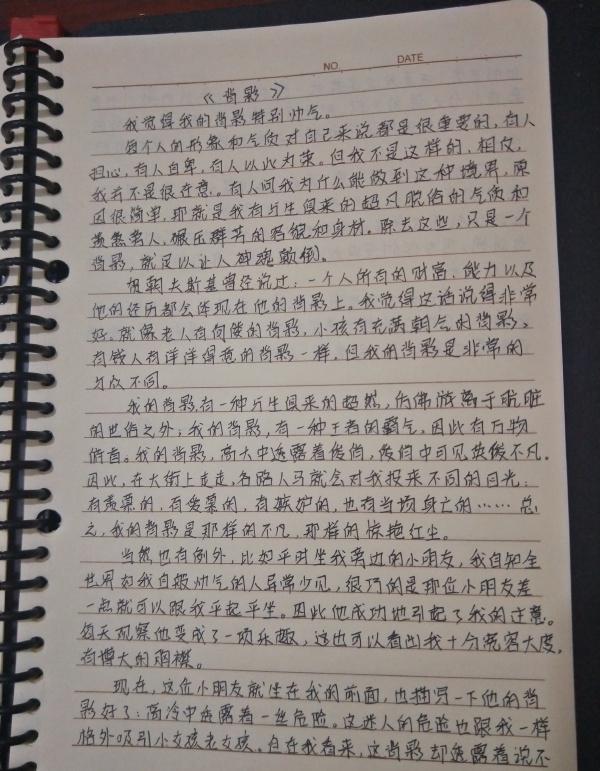 NO. DATE
《背影》
我觉得我的背影特别帅气。
每个人的形象和气质对自己来说都是很重要的,有人
担心,有人自卑,有人以此为荣。但我不是这样的,相反,
我并不是很在意。有人问我为什么能做到这种境界,原
因很简单,那就是我有与生俱来的超凡脱俗的气质和
羡煞旁人、碾压群芳的容貌和身材。除去这些,只是一个
背影,就足以让人神魂颠倒。
机朝夫斯基曾经说过:一个人所有的财富、能力以及
他的经历都会体现在他的背影上。我觉得这话说得非常
好,就像老人有佝偻的背影,小孩有充满朝气的背影,
有钱人有洋洋得意的背影一样,但我的背影是非常的
与众不同。
我的背影有一种与生俱来的超然,仿佛游离于肮脏
的世俗之外;我的背影,有一种王者的霸气,因此有万物
俯首。我的背影,高大中透露着俊俏,俊俏中可见英俊不凡。
因此,在大街上走走,各路人马就会对我投来不同的目光:
有羡慕的,有爱慕的,有嫉妒的,也有当场身亡的……总
之,我的背影是那样的不凡,那样的惊艳红尘。
当然也有例外,比如平时坐我旁边的小朋友,我自知全
世界如我自般帅气的人异常少见,很巧的是那位小朋友差
一点就可以跟我平起平坐。因此他成功地引起了我的注意。
每天观察他变成了一项乐趣,这也可以看出我十分宽容大度,
有博大的胸襟。
现在,这位小朋友就坐在我的前面,也描写一下他的背
影好了:高冷中透露着一丝危险。这迷人的危险也跟我一样
格外吸引小女孩老女孩。但在我看来,这背影却透露着说不